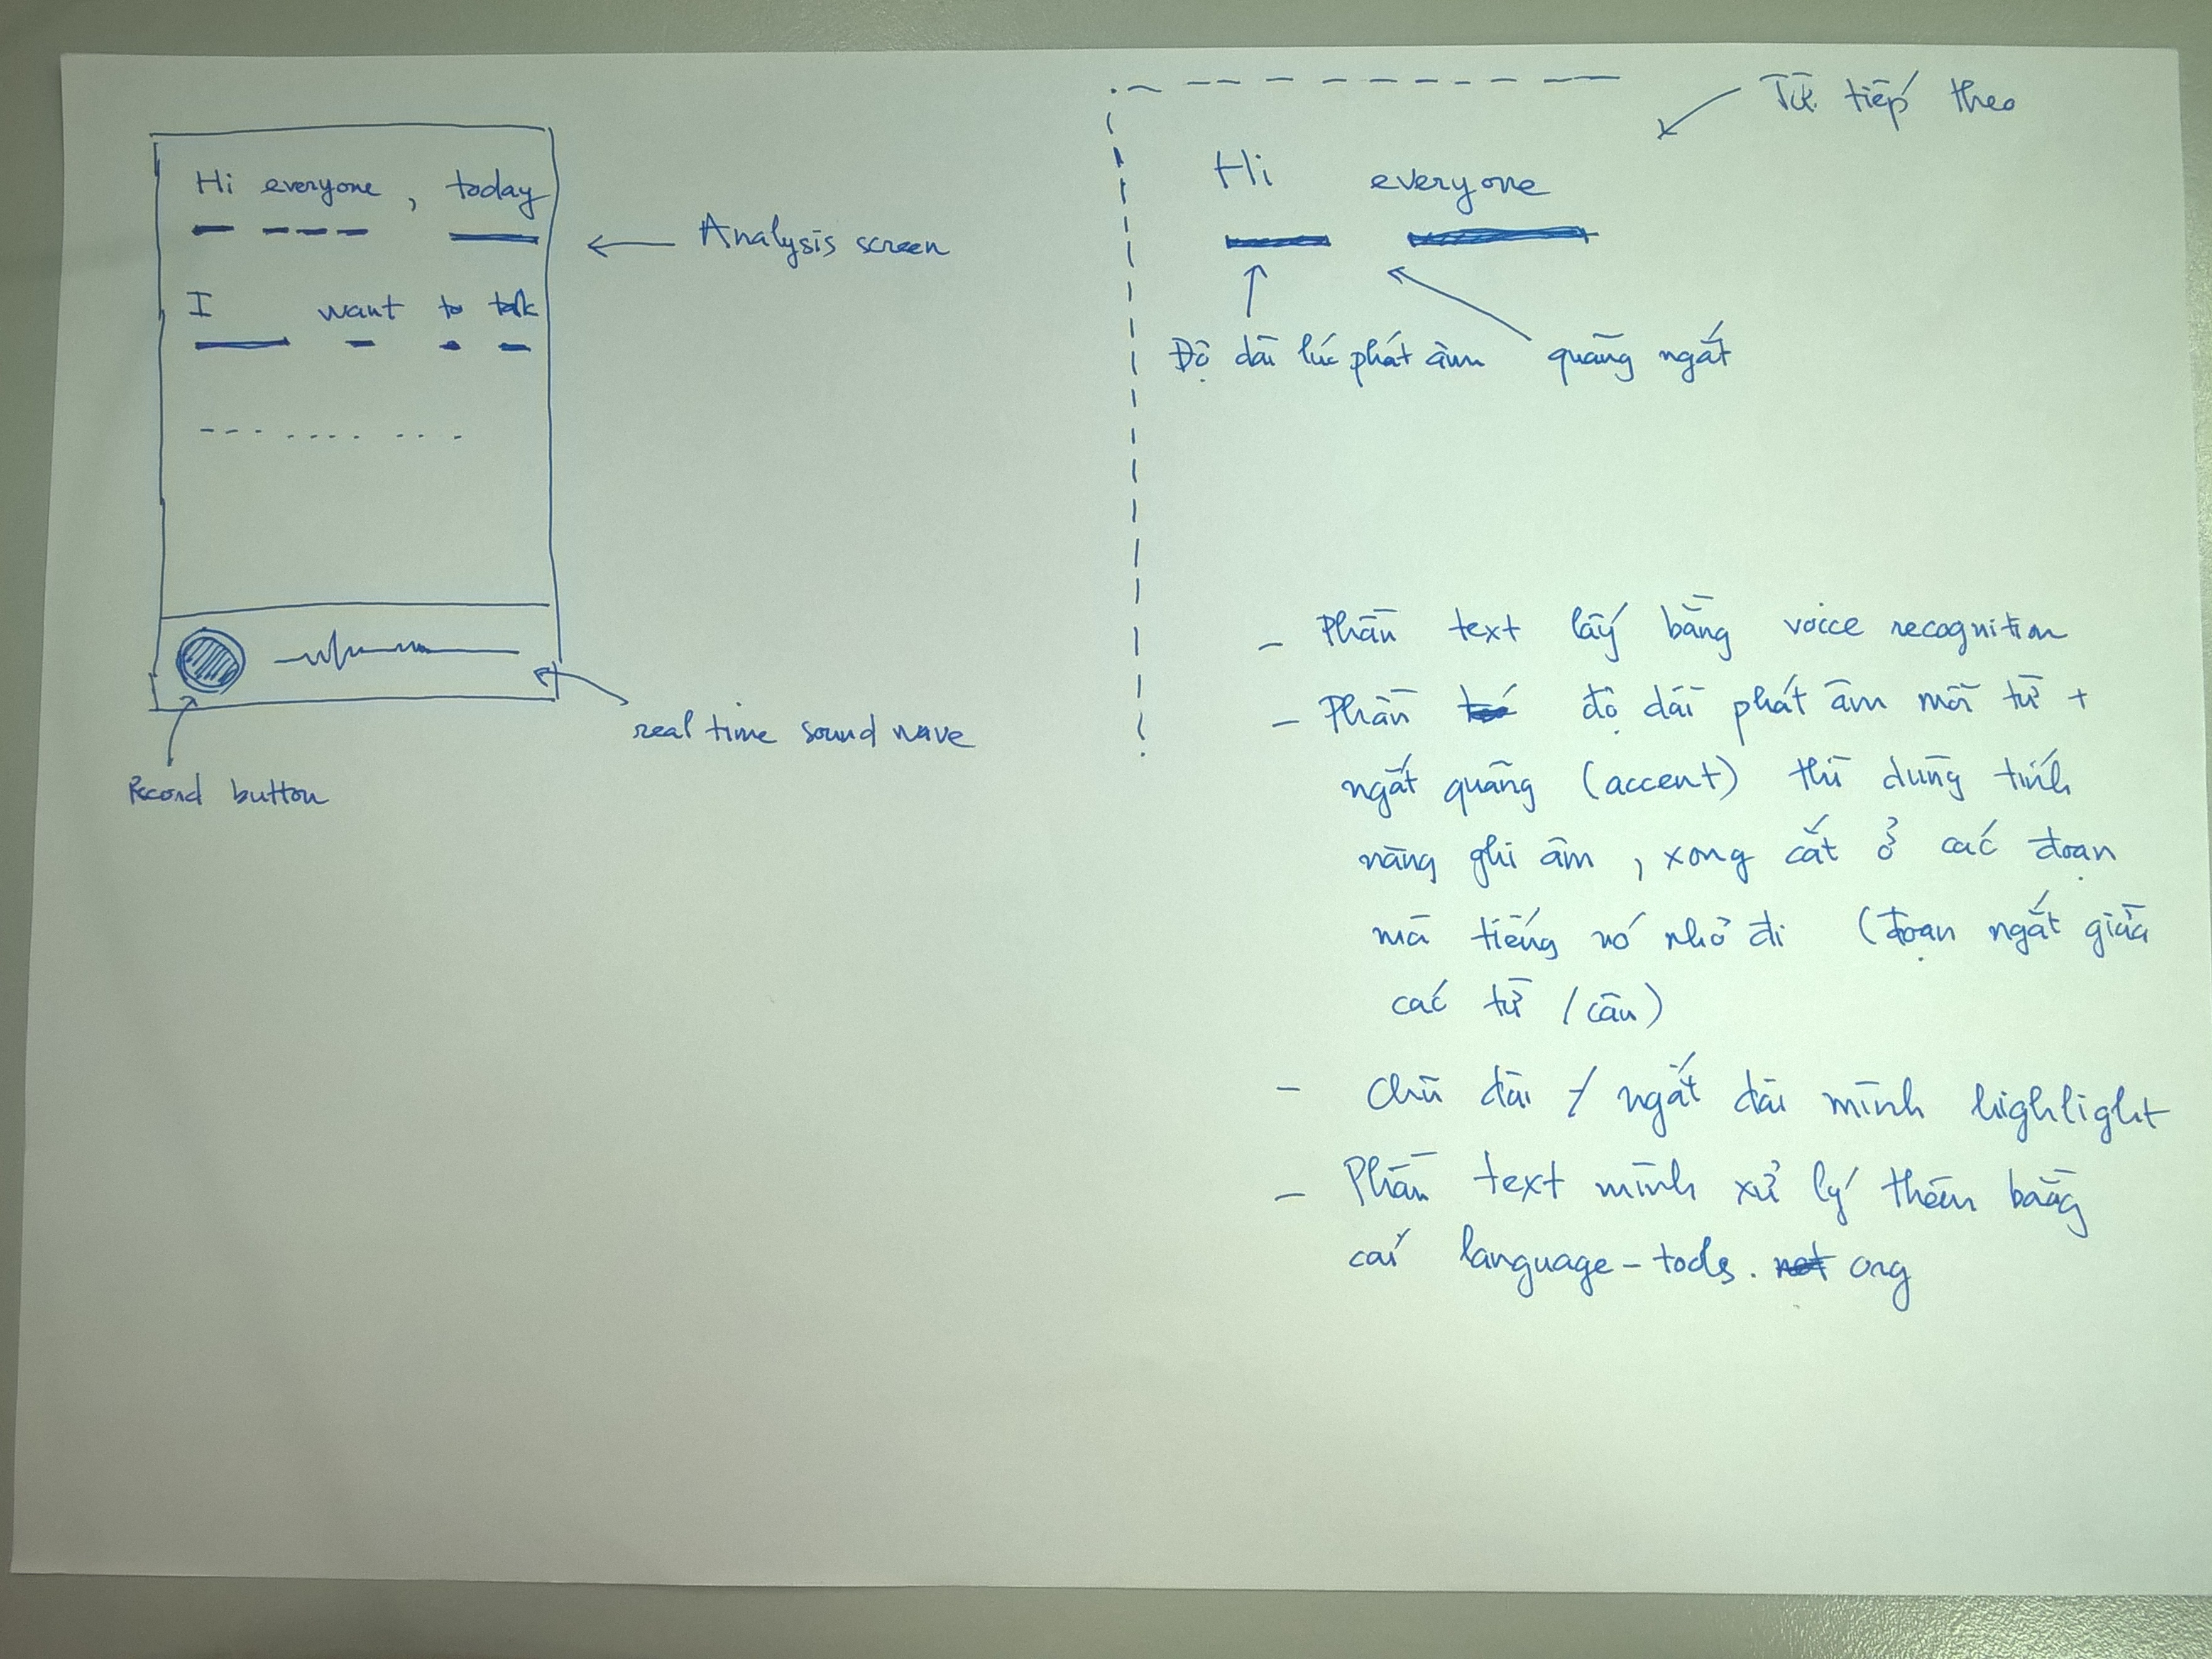 Hi everyone, today
I want to talk
Analysis screen
real time sound wave
Record button
Từ tiếp theo
Hi everyone
Độ dài lúc phát âm
quãng ngắt
- Phần text lấy bằng voice recognition
- Phần độ dài phát âm mỗi từ +
ngắt quãng (accent) thì dùng tính
năng ghi âm, xong cắt ở các đoạn
mà tiếng nó nhỏ đi (đoạn ngắt giữa
các từ / câu)
- Chữ dài / ngắt dài mình highlight
- Phần text mình xử lý thêm bằng
cái language-tools. org